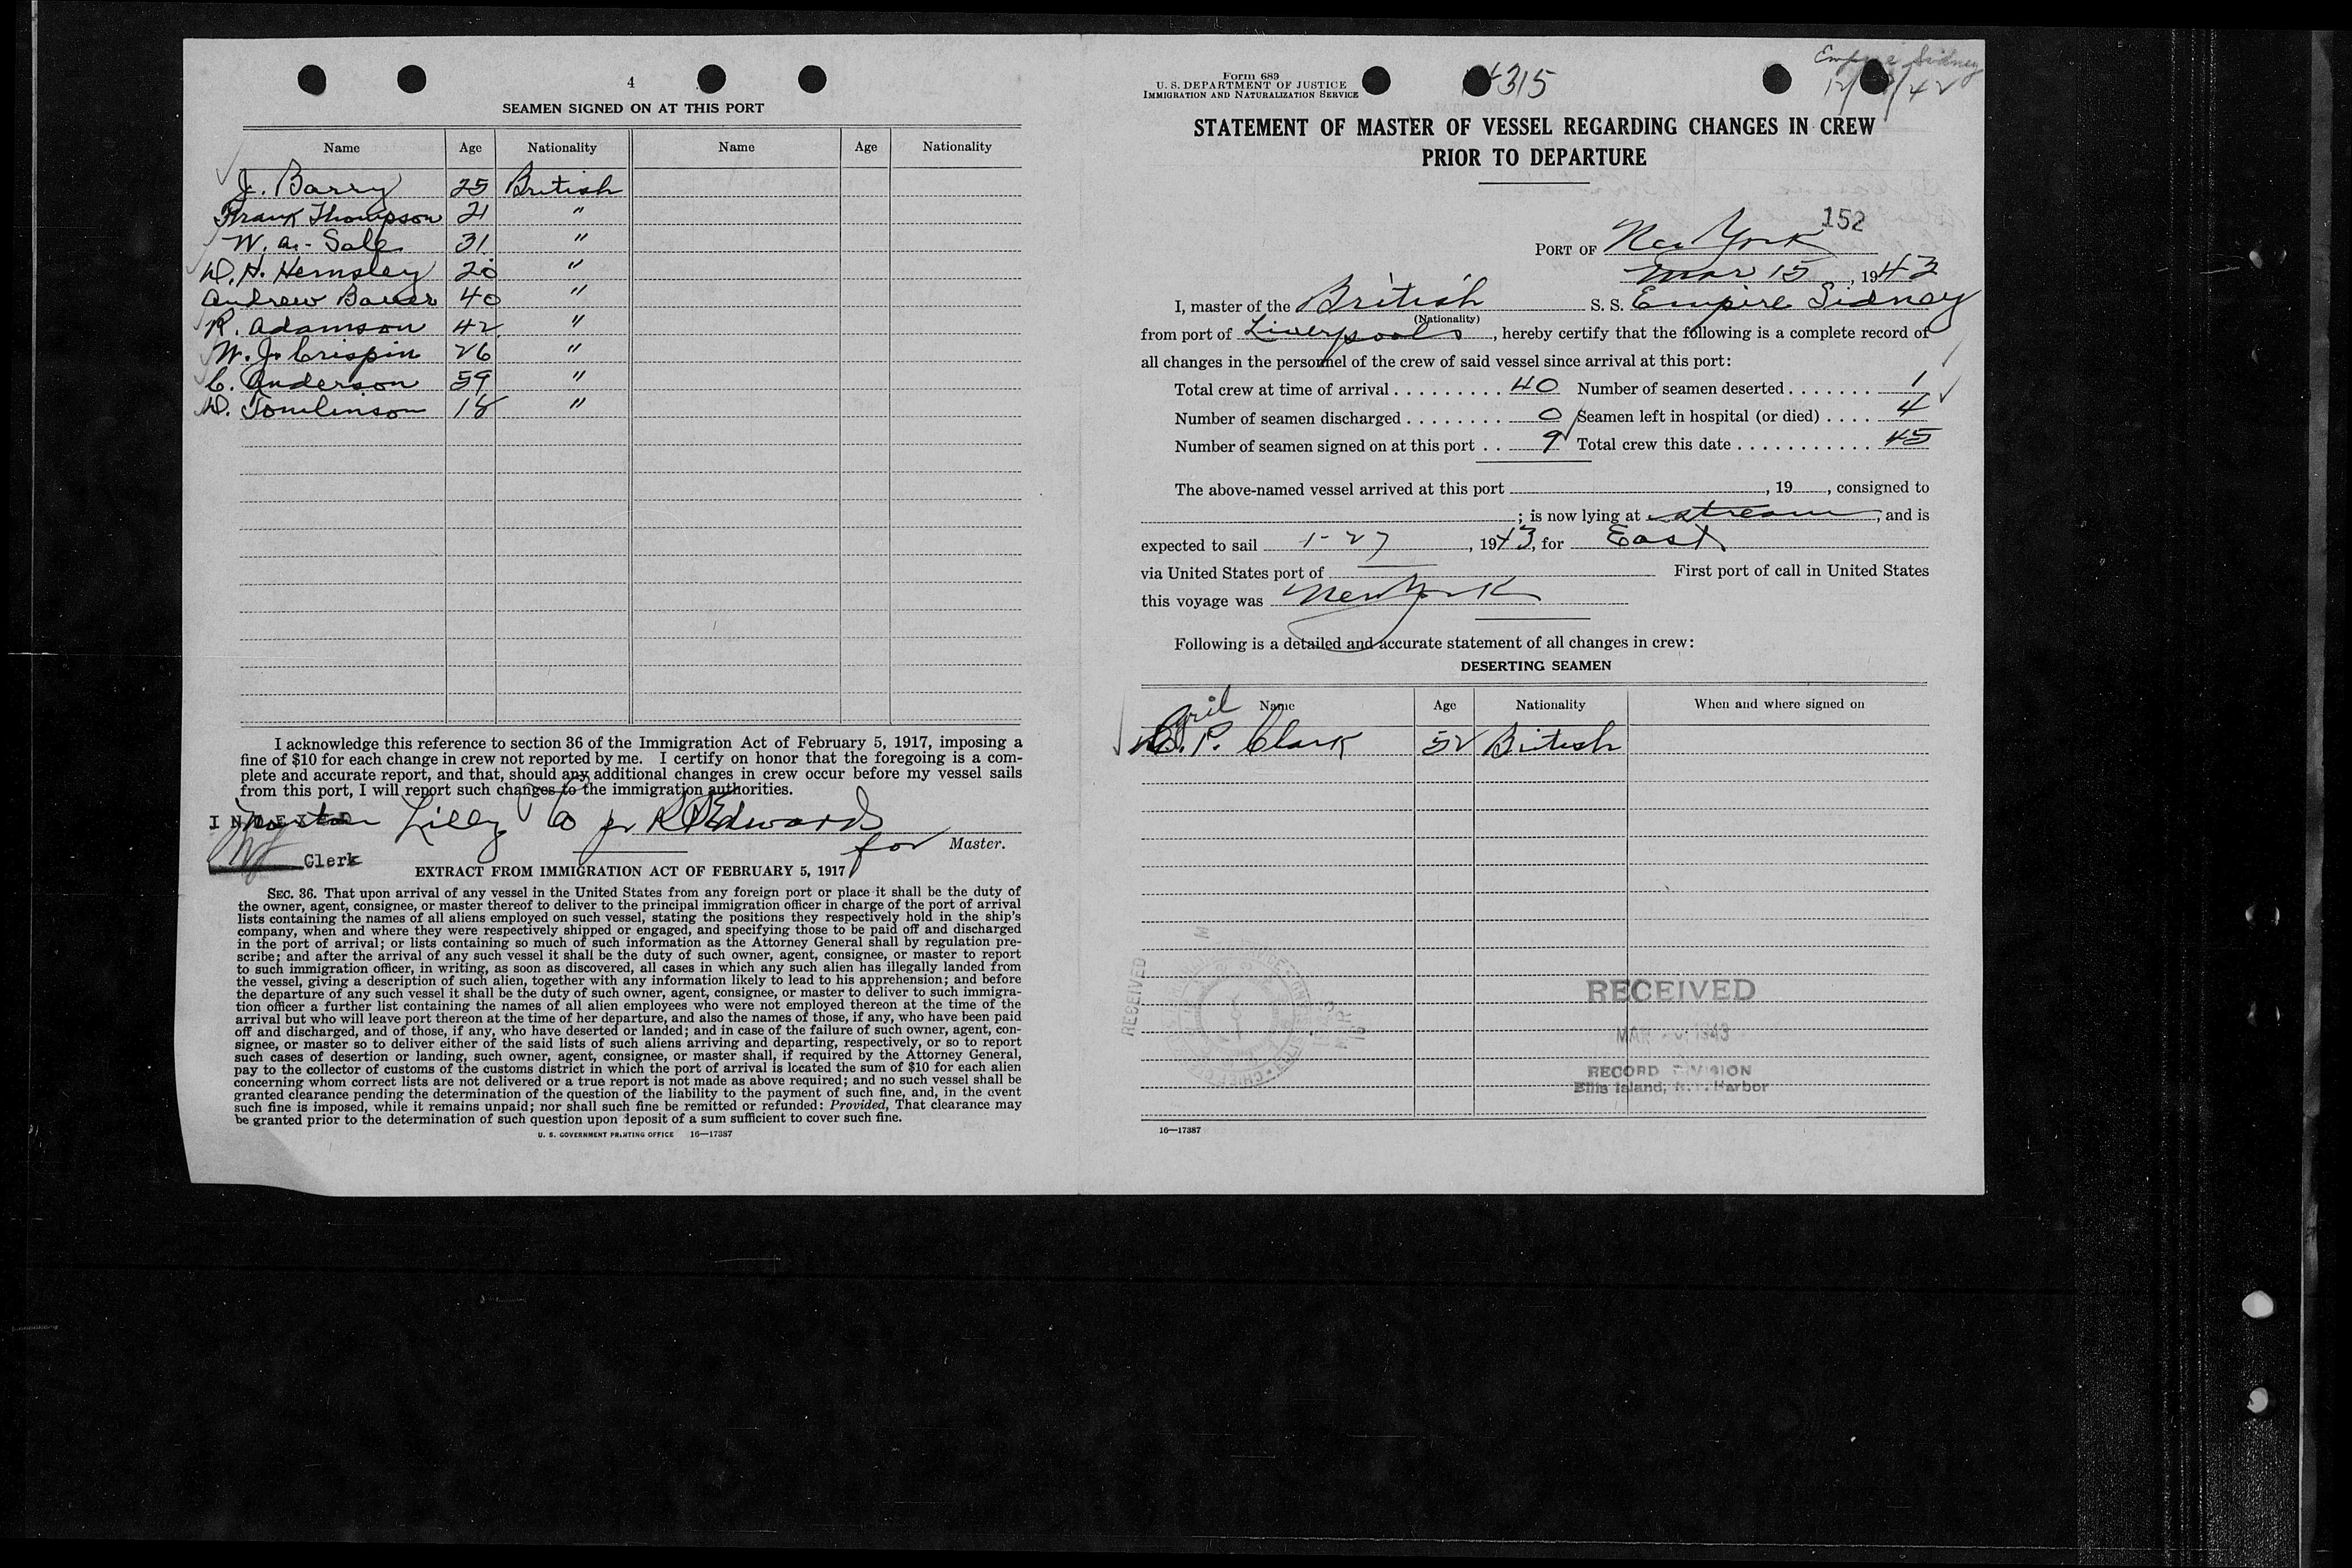 4
SEAMEN SIGNED ON AT THIS PORT
Name Age Nationality Name Age Nationality
J. Barry 25 British
Frank Thompson 21 "
W. A. Sale 31 "
D. H. Hemsley 20 "
Andrew Bauer 40 "
R. Adamson 42 "
W. J. Crispin 26 "
C. Anderson 59 "
D. Tomlinson 18 "
I acknowledge this reference to section 36 of the Immigration Act of February 5, 1917, imposing a
fine of $10 for each change in crew not reported by me. I certify on honor that the foregoing is a com-
plete and accurate report, and that, should any additional changes in crew occur before my vessel sails
from this port, I will report such changes to the immigration authorities.
INDEXED
Lilly Co Edwards
for Master.
Clerk
EXTRACT FROM IMMIGRATION ACT OF FEBRUARY 5, 1917
SEC. 36. That upon arrival of any vessel in the United States from any foreign port or place it shall be the duty of
the owner, agent, consignee, or master thereof to deliver to the principal immigration officer in charge of the port of arrival
lists containing the names of all aliens employed on such vessel, stating the positions they respectively hold in the ship's
company, when and where they were respectively shipped or engaged, and specifying those to be paid off and discharged
in the port of arrival; or lists containing so much of such information as the Attorney General shall by regulation pre-
scribe; and after the arrival of any such vessel it shall be the duty of such owner, agent, consignee, or master to report
to such immigration officer, in writing, as soon as discovered, all cases in which any such alien has illegally landed from
the vessel, giving a description of such alien, together with any information likely to lead to his apprehension; and before
the departure of any such vessel it shall be the duty of such owner, agent, consignee, or master to deliver to such immigra-
tion officer a further list containing the names of all alien employees who were not employed thereon at the time of the
arrival but who will leave port thereon at the time of her departure, and also the names of those, if any, who have been paid
off and discharged, and of those, if any, who have deserted or landed; and in case of the failure of such owner, agent, con-
signee, or master so to deliver either of the said lists of such aliens arriving and departing, respectively, or so to report
such cases of desertion or landing, such owner, agent, consignee, or master shall, if required by the Attorney General,
pay to the collector of customs of the customs district in which the port of arrival is located the sum of $10 for each alien
concerning whom correct lists are not delivered or a true report is not made as above required; and no such vessel shall be
granted clearance pending the determination of the question of the liability to the payment of such fine, and, in the event
such fine is imposed, while it remains unpaid; nor shall such fine be remitted or refunded: Provided, That clearance may
be granted prior to the determination of such question upon deposit of a sum sufficient to cover such fine.
U. S. GOVERNMENT PRINTING OFFICE 16—17387
Form 689
U. S. DEPARTMENT OF JUSTICE
IMMIGRATION AND NATURALIZATION SERVICE
4315
Empire Sidney
STATEMENT OF MASTER OF VESSEL REGARDING CHANGES IN CREW
PRIOR TO DEPARTURE
152
PORT OF New York
Mar 15, 1943
I, master of the British S. S. Empire Sidney
(Nationality)
from port of Liverpool, hereby certify that the following is a complete record of
all changes in the personnel of the crew of said vessel since arrival at this port:
Total crew at time of arrival ......... 40 Number of seamen deserted ....... 1
Number of seamen discharged ........ 0 Seamen left in hospital (or died) .... 4
Number of seamen signed on at this port .. 9 Total crew this date ........... 45
The above-named vessel arrived at this port , 19 , consigned to
; is now lying at stream, and is
expected to sail 1-27, 1943, for East
via United States port of First port of call in United States
this voyage was New York
Following is a detailed and accurate statement of all changes in crew:
DESERTING SEAMEN
Name Age Nationality When and where signed on
Cyril
P. Clark 52 British
RECEIVED
RECEIVED
MAR 1943
RECORD DIVISION
Ellis Island, N. Y. Harbor
16—17387